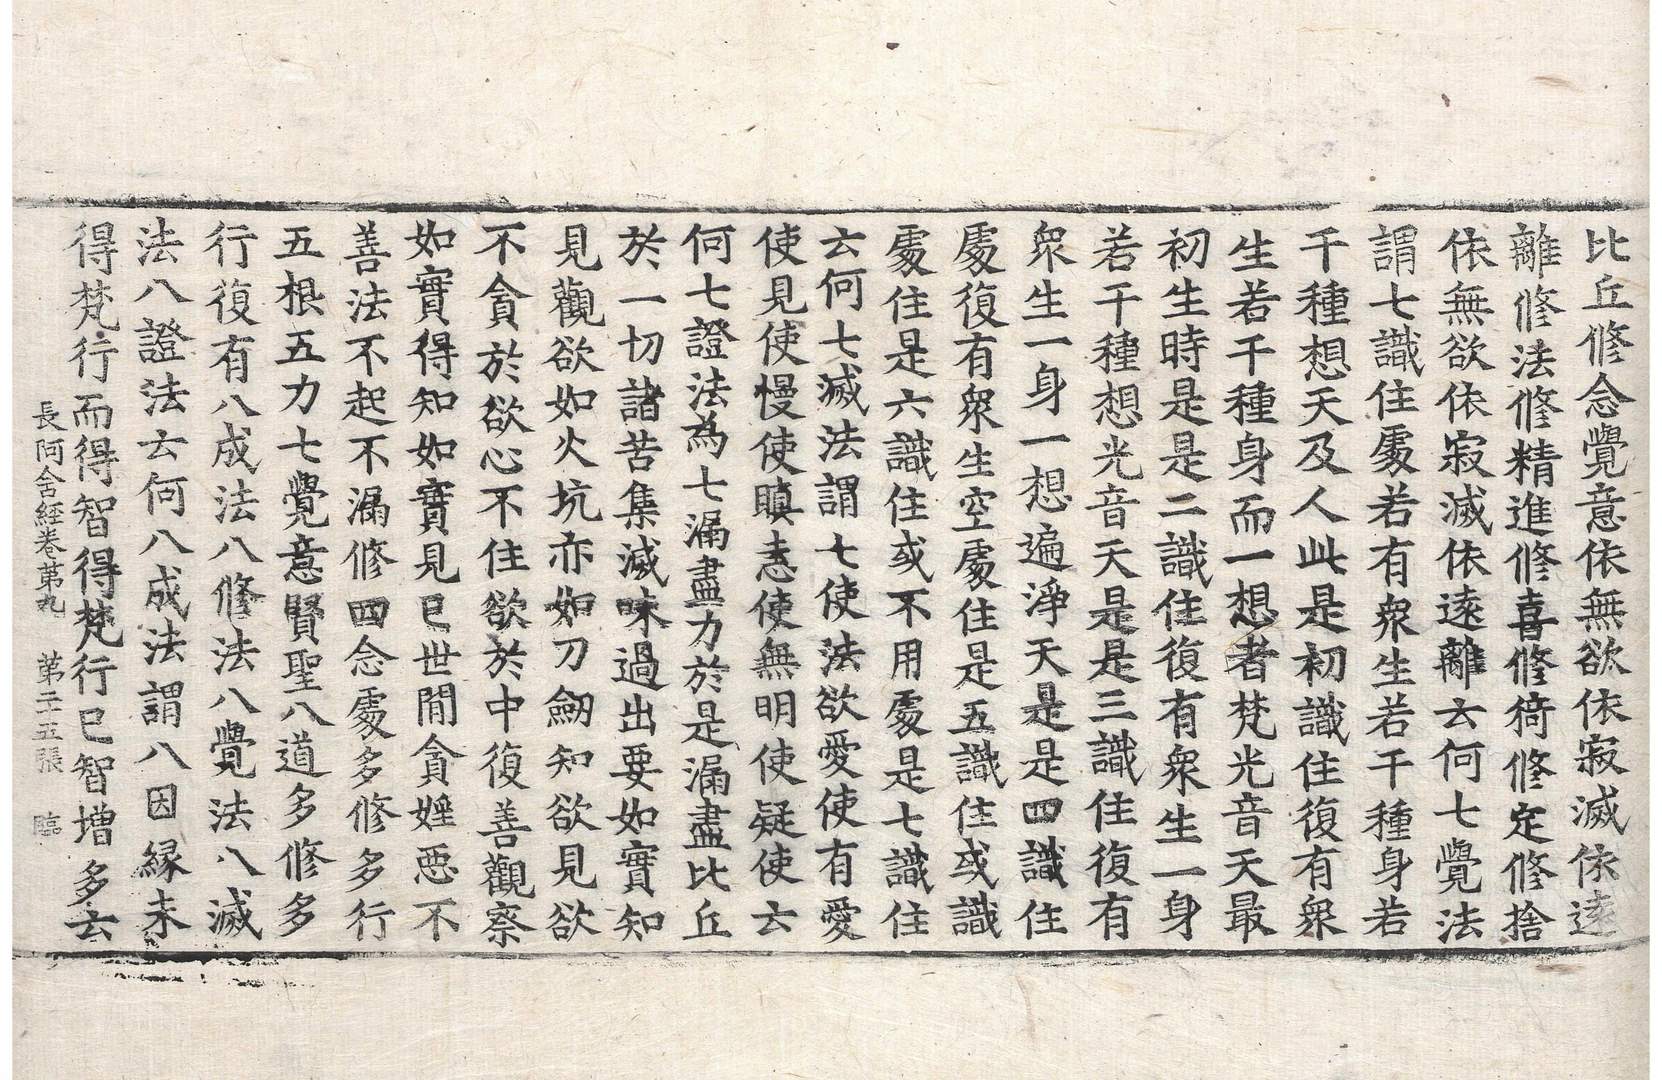 比丘修念覺意依無欲依寂滅依遠
離修法修精進修喜修猗修定修捨
依無欲依寂滅依遠離云何七覺法
謂七識住處若有衆生若干種身若
干種想天及人此是初識住復有衆
生若干種身而一想者梵光音天最
初生時是是二識住復有衆生一身
若干種想光音天是是三識住復有
衆生一身一想遍淨天是是四識住
處復有衆生空處住是五識住或識
處住是六識住或不用處是七識住
云何七滅法謂七使法欲愛使有愛
使見使慢使瞋恚使無明使疑使云
何七證法為七漏盡力於是漏盡比丘
於一切諸苦集滅味過出要如實知
見觀欲如火坑亦如刀劒知欲見欲
不貪於欲心不住欲於中復善觀察
如實得知如實見已世間貪婬惡不
善法不起不漏修四念處多修多行
五根五力七覺意賢聖八道多修多
行復有八成法八修法八覺法八滅
法八證法云何八成法謂八因緣未
得梵行而得智得梵行已智增多云
長阿含經卷苐九 苐二十五張 臨